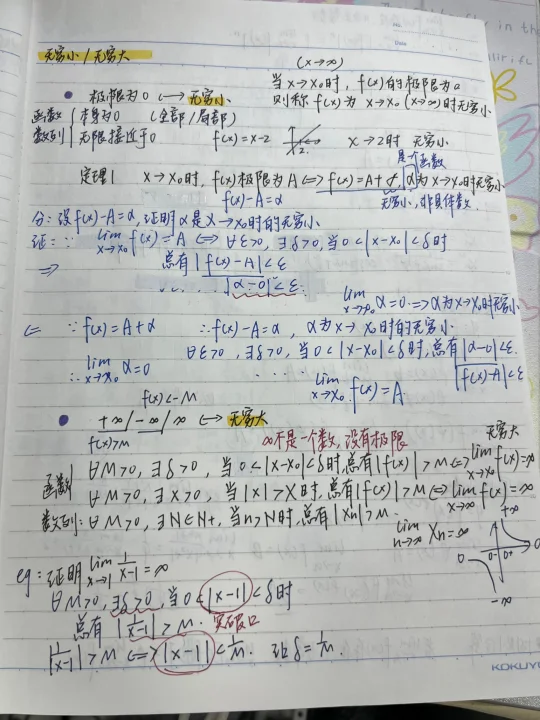 无穷小/无穷大
(x→∞)
当x→x₀时,f(x)的极限为0
则称f(x)为x→x₀(x→∞)时无穷小
• 极限为0 ↔ 无穷小
函数 { 本身为0 (全部/局部)
数列 { 无限接近于0 f(x)=x-2 2 x→2时 无穷小
是一个函数
定理1 x→x₀时,f(x)极限为A⇔f(x)=A+α,α为x→x₀时无穷小
f(x)-A=α 无穷小,非具体数
分:设f(x)-A=α,证明α是x→x₀时的无穷小
证:∵ lim x→x₀ f(x)=A ⇔ ∀ε>0,∃δ>0,当0<|x-x₀|<δ时
⇒ 总有|f(x)-A|<ε
|α-0|<ε.
lim x→x₀ α=0 ⇒α为x→x₀时无穷小
⇐ ∵f(x)=A+α ∴f(x)-A=α,α为x→x₀时的无穷小
∴lim x→x₀ α=0 ∀ε>0,∃δ>0,当0<|x-x₀|<δ时,总有|α-0|<ε.
|f(x)-A|<ε
lim x→x₀ f(x)=A
f(x)<-M
• +∞/-∞/∞ ↔ 无穷大
f(x)>M
∞不是一个数,没有极限
无穷大
函数 { ∀M>0,∃δ>0,当0<|x-x₀|<δ时,总有|f(x)|>M⇔lim x→x₀ f(x)=∞
∀M>0,∃X>0,当|x|>X时,总有|f(x)|>M⇔lim x→∞ f(x)=∞
数列:∀M>0,∃N∈N+,当n>N时,总有|Xn|>M.
lim n→∞ Xn=∞
+∞
0 0+ 0
-∞
eg:证明lim x→1 1/x-1=∞
∀M>0,∃δ>0,当0<|x-1|<δ时
总有|1/x-1|>M. 突破口
|1/x-1|>M⇔|x-1|<1/M. 取δ=1/M.
KOKUYO